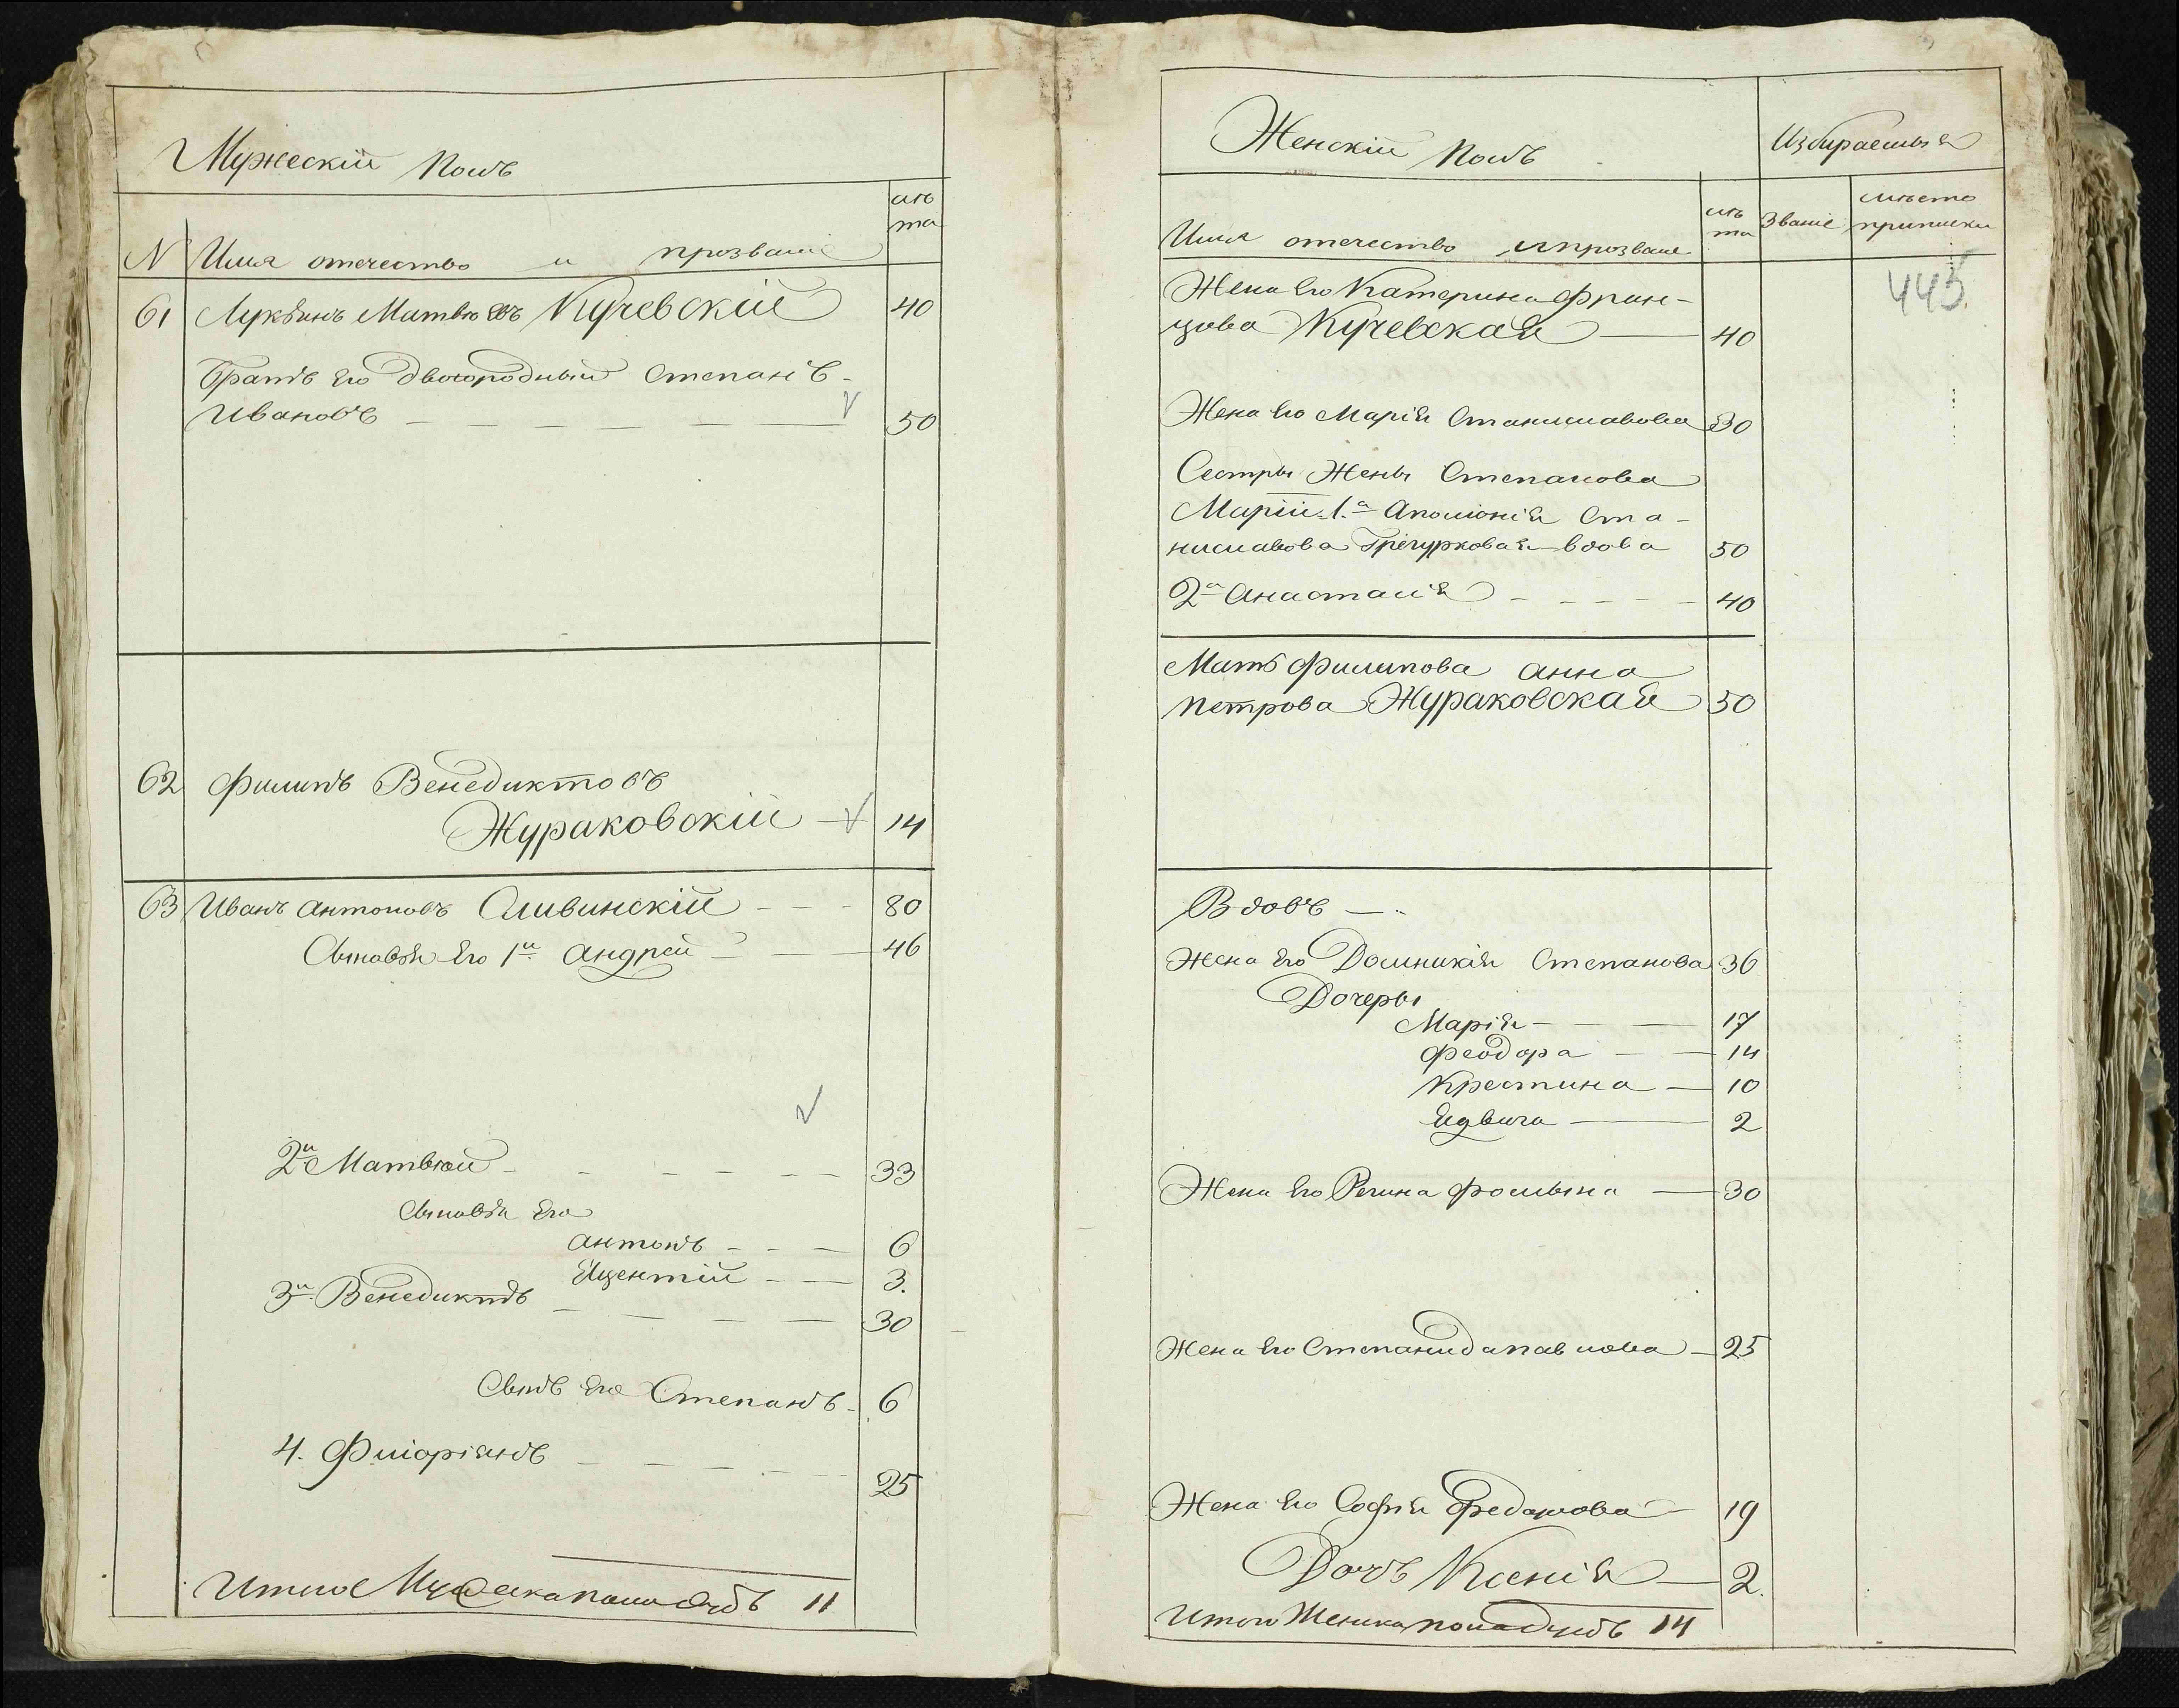 Мужескій Полъ
N Имя отечество и прозваніе лѣта
61 Лукьянъ Матвѣевъ Кучевскій 40
Братъ Его двоюродный Степанъ
Ивановъ 50
62 Филипъ Венедиктовъ
Жураковскій 14
63 Иванъ Антоновъ Сливинскій 80
Сыновья Его 1й Андрей 46
2й Матвѣй 33
Сыновья Его
Антонъ 6
Викентій 3.
3й Венедиктъ 30
Сынъ Его Степанъ 6
4. Флоріянъ 25
Итого Мужеска пола душъ 11
Женскій Полъ Избираемыя
Имя отечество и прозваніе лѣта Званіе мѣсто приписки
445.
Жена Его Катерина Фран-
цова Кучевская 40
Жена Его Марія Станиславова 30
Сестры Жены Степанова
Маріи 1.а Аполонія Ста-
ниславова вдова 50
2а Анастасія 40
Мать Филипова Анна
Петрова Жураковская 50
Вдовъ
Жена Его Доминикія Степанова 36
Дочеры
Марія 17
Феодора 14
Крестина 10
Ядвига 2
Жена Его Регина Фомына 30
Жена Его Степанида Павлова 25
Жена Его Софія 19
Дочь Ксенія 2.
Итого Женска пола душъ 14